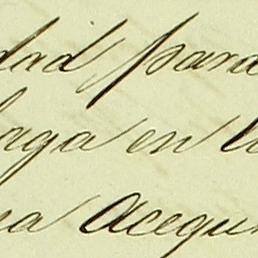 dad para
haga en l
na acegu